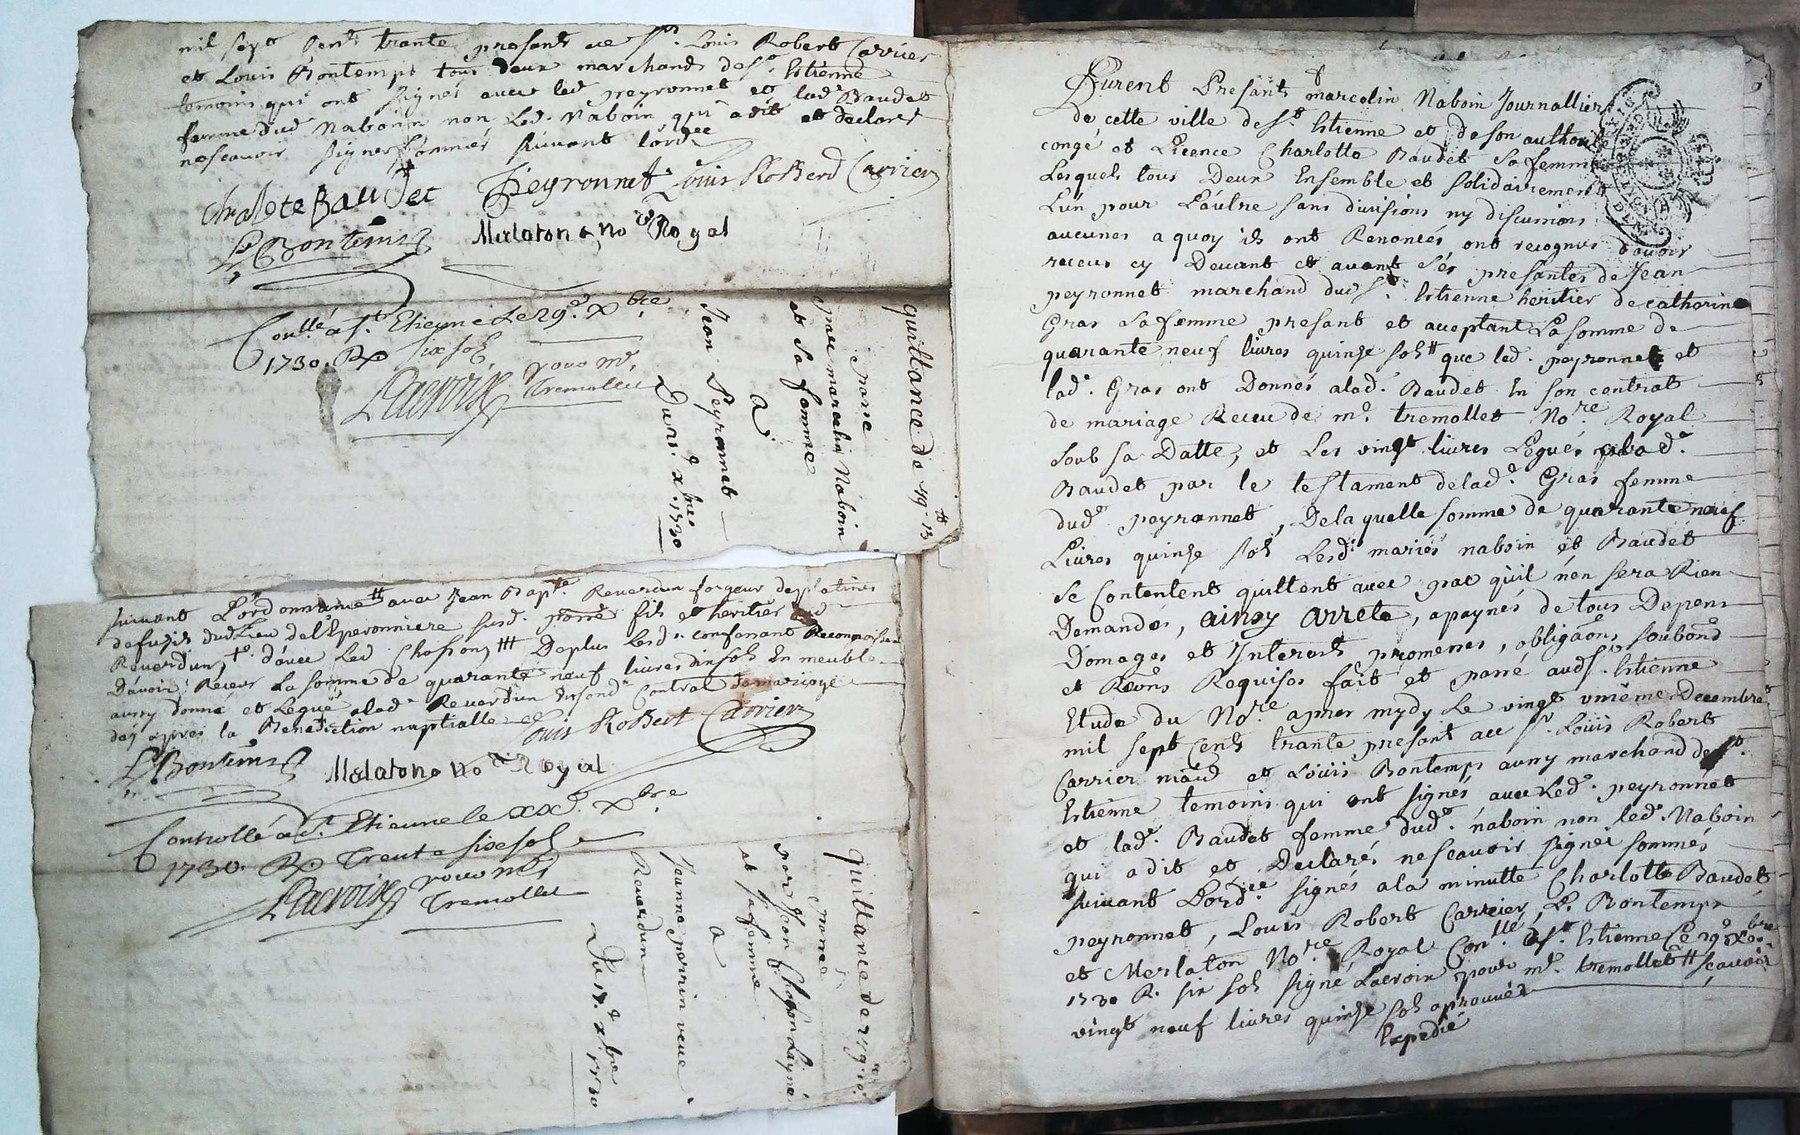 mil sept Cent trante presant ace sr. Louis Robert Carrier
et Louis Bontemps tous deux marchands de st. Estienne
temoins qui ont signés avec led. peyronnet et lade. Baudet
femme dud. Naboin non led. Naboin qui a dit et declaré
nescavoir signer sommés suivant lordce
Charlote Baudet Peyronnet Louis Robert Carrier
Ls. Bontems Merlaton, nore Royal
Conllé a st. Etienne le 29e. xbre
1730. R. six sols
Lacroix pour mr.
Tremollet
quittance de 49tt 15
passé
par marcelin Naboin
et sa femme
a
Jean Peyronnet
Du 21e. xbre 1730
suivant lordonnance avec Jean Bapte. Reverdun forgeur de platines
de fuzils dud. Lieu de lEperonniere susd. fils et heritier
Reverdun, davec led. Chapon Deplus lesd. confessant
davoir Receu la somme de quarante neuf livres dix sols En meuble
aussy donné et Legué alade. Reverdun Contrat de mariage
des apres la Benediction nuptialle
Louis Robert Carrier
Ls. Bontems Merlaton no. Royal
Controllé a st. Etienne le xbre
1730. R. Trente six sols
Lacroix pour mr.
Tremollet
quittance de
passée
par Jean Chapon Layné
et sa femme
a
Jeanne perrin veuve
Reverdun
Du 17e. xbre 1730
Furent Presants marcelin Naboin Journallier
de cette ville de st. Estienne et de son authorité
congé et Licence Charlotte Baudet sa femme
Lesquels tous Deux Ensemble et solidairement
L'un pour L'autre sans divisions ny discussions
aucunes a quoy ils ont Renoncés ont recognus d'avoir
receus cy Devant et avant ses presantes de Jean
peyronnet marchand dud. st. Estienne heritier de catherine
Gras sa femme presant et acceptant La somme de
quarante neuf livres quinze sols tt que led. peyronnet et
lade. Gras ont Donnés alade. Baudet En son contrat
de mariage Receu de me. tremollet Nore. Royal
soub sa Datte, et Les vingt livres Legués alade.
Baudet par le testament delade. Gras femme
dude. peyronnet, De laquelle somme de quarante neuf
Livres quinze sols Lesd. mariés naboin et Baudet
se Contentent quittent avec pac qu'il n'en sera Rien
Demandés, ainsy arreté, a peynes de tous Depens
Domages et Interests promesses, obligãons soubõns
et Reõns Requises fait et passé aud st. Estienne
Etude du Nore. apres mydy Le vingt unieme Decembre
mil sept Cent trante presant ace sr. Louis Robert
Carrier et Louis Bontemps aussy marchand de st.
Estienne temoins qui ont signés avec led. peyronnet
et lade. Baudet femme dude. naboin non led. Naboin
qui a dit et Declarés nescavoir signer sommés
suivant Lordce. signés a la minutte Charlotte Baudet
peyronnet, Louis Robert Carrier, Ls. Bontemps
et Merlaton Nore. Royal Conllé. a st. Estienne Le 29e xbre
1730 R. six sols signé Lacroix pour mr. tremollet tt scavoir
vingt neuf livres quinze sols aprouvés
Expedié